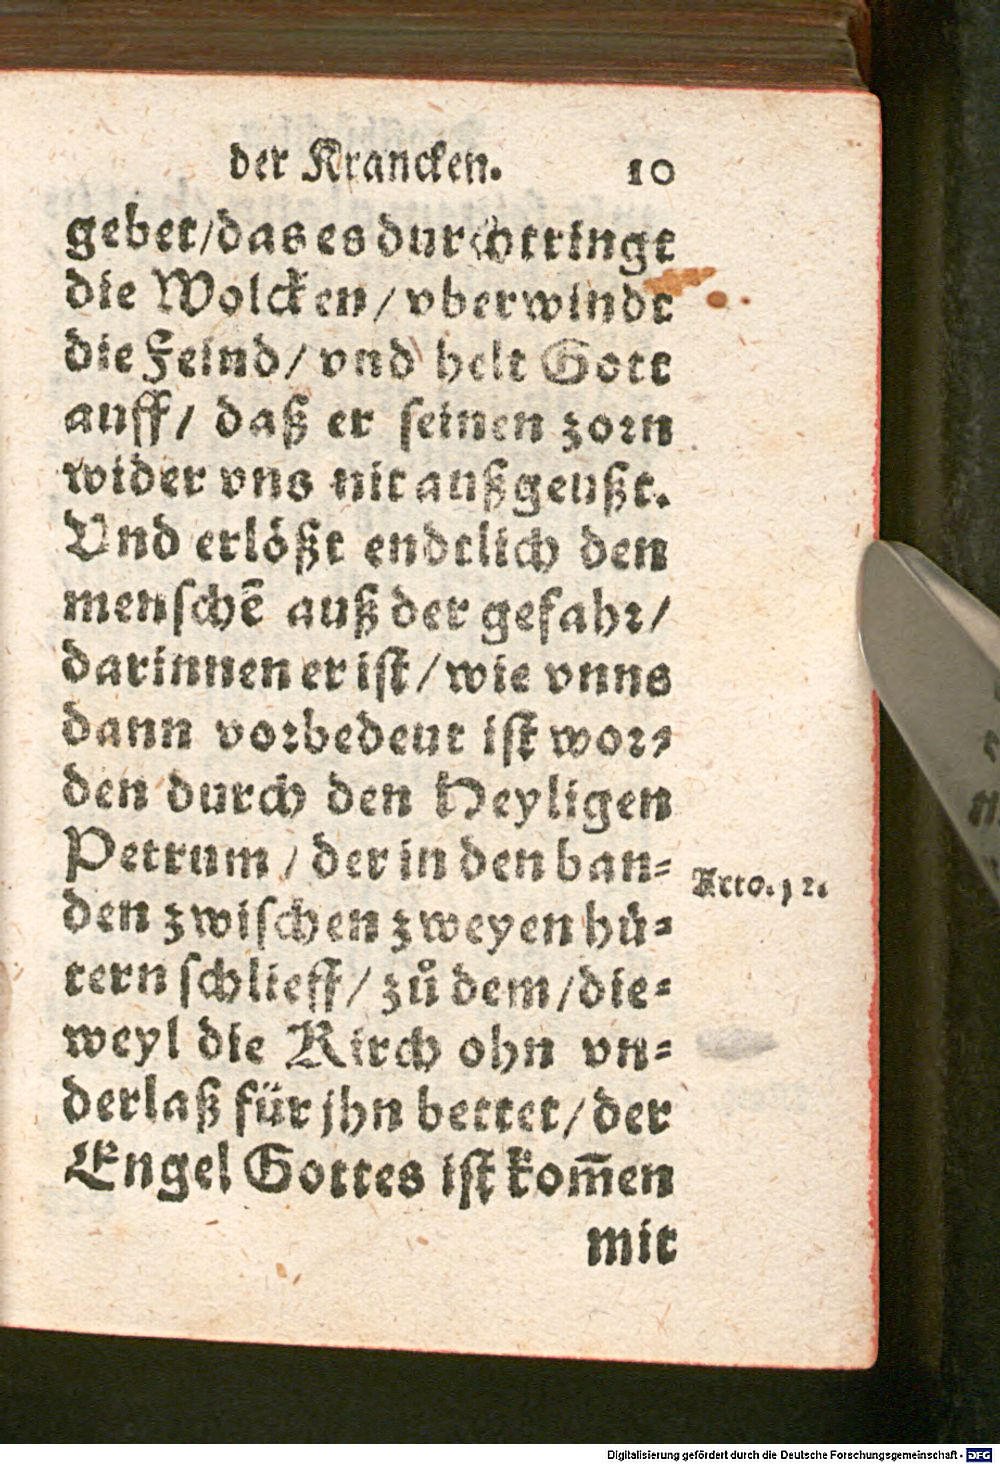 der Krancken. 10
gebet/das es durchtringt
die Wolcken/vberwindt
die Feind/vnd helt Gott
auff/ daß er seinen zorn
wider vns nit außgeußt.
Vnd erlößt endtlich den
menschē auß der gefahr/
darinnen er ist/wie vnns
dann vorbedeut ist wor-
den durch den Heyligen
Petrum/der in den ban-
den zwischen zweyen hü-
tern schlieff/zů dem/die-
weyl die Kirch ohn vn-
derlaß für jhn bettet/der
Engel Gottes ist kom̄en
mit
Acto. 12.
Digitalisierung gefördert durch die Deutsche Forschungsgemeinschaft - DFG